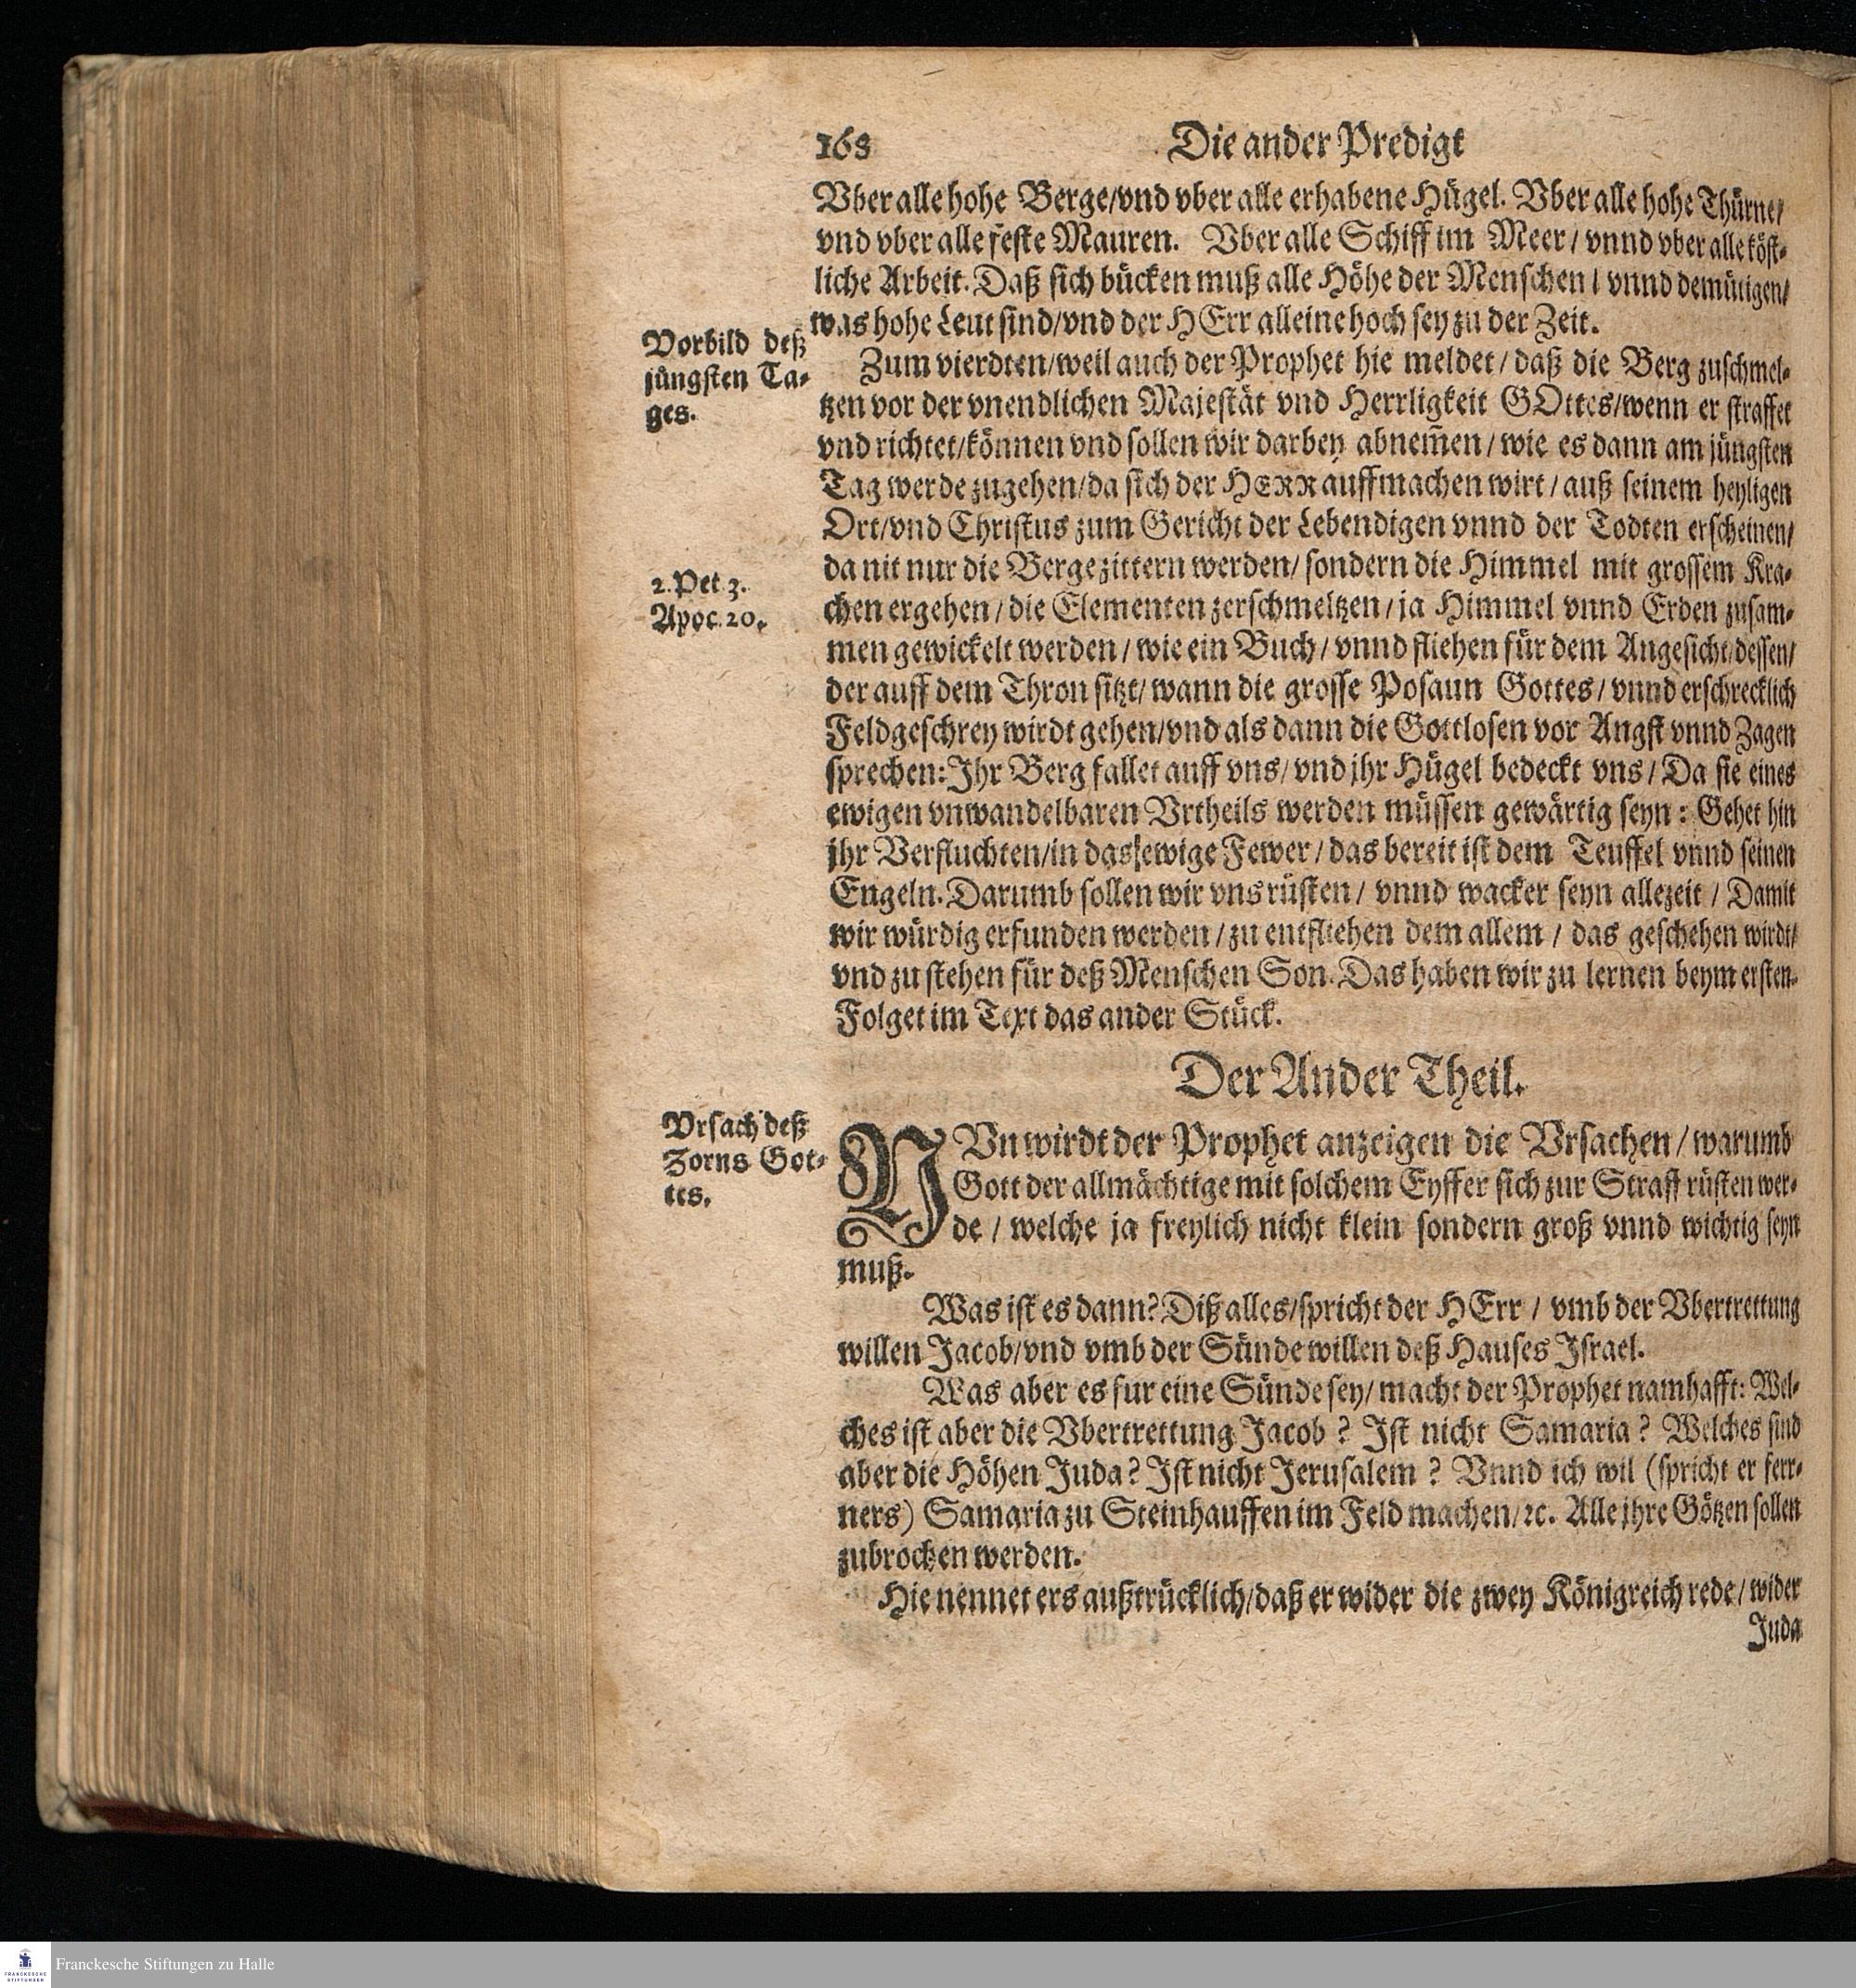 168 Die ander Predigt
Vber alle hohe Berge/vnd vber alle erhabene Hügel. Vber alle hohe Thürne/
vnd vber alle feste Mauren. Vber alle Schiff im Meer / vnnd vber alle köst-
liche Arbeit. Daß sich bücken muß alle Höhe der Menschen / vnnd demütigen/
was hohe Leut sind/vnd der HErr alleine hoch sey zu der Zeit.
Vorbild deß
jüngsten Ta-
ges.
Zum vierdten/weil auch der Prophet hie meldet / daß die Berg zuschmel-
tzen vor der vnendlichen Majestät vnd Herrligkeit GOttes/wenn er straffet
vnd richtet/können vnd sollen wir darbey abnem̃en / wie es dann am jüngsten
Tag werde zugehen/da sich der HERR auffmachen wirt / auß seinem heyligen
Ort/vnd Christus zum Gericht der Lebendigen vnnd der Todten erscheinen/
da nit nur die Berge zittern werden/ sondern die Himmel mit grossem Kra-
2. Pet 3.
Apoc. 20.
chen ergehen / die Elementen zerschmeltzen / ja Himmel vnnd Erden zusam-
men gewickelt werden / wie ein Buch / vnnd fliehen für dem Angesicht dessen/
der auff dem Thron sitzt/ wann die grosse Posaun Gottes / vnnd erschrecklich
Feldgeschrey wirdt gehen/vnd als dann die Gottlosen vor Angst vnnd Zagen
sprechen: Ihr Berg fallet auff vns/ vnd jhr Hügel bedeckt vns / Da sie eines
ewigen vnwandelbaren Vrtheils werden müssen gewärtig seyn : Gehet hin
jhr Verfluchten/in das ewige Fewer / das bereit ist dem Teuffel vnnd seinen
Engeln. Darumb sollen wir vns rüsten / vnnd wacker seyn allezeit / Damit
wir würdig erfunden werden / zu entfliehen dem allem / das geschehen wirdt/
vnd zu stehen für deß Menschen Son. Das haben wir zu lernen beym ersten.
Folget im Text das ander Stück.
Der Ander Theil.
Vrsach deß
Zorns Got-
tes.
NVn wirdt der Prophet anzeigen die Vrsachen / warumb
Gott der allmächtige mit solchem Eyffer sich zur Straff rüsten wer-
de / welche ja freylich nicht klein sondern groß vnnd wichtig seyn
muß.
Was ist es dann? Diß alles/spricht der HErr / vmb der Vbertrettung
willen Jacob/vnd vmb der Sünde willen deß Hauses Israel.
Was aber es fur eine Sünde sey/ macht der Prophet namhafft: Wel-
ches ist aber die Vbertrettung Jacob ? Ist nicht Samaria ? Welches sind
aber die Höhen Juda? Ist nicht Jerusalem ? Vnnd ich wil (spricht er ferr-
ners) Samaria zu Steinhauffen im Feld machen/ꝛc. Alle jhre Götzen sollen
zubrochen werden.
Hie nennet ers außtrücklich/daß er wider die zwey Königreich rede / wider
Juda
Franckesche Stiftungen zu Halle
FRANCKESCHE
STIFTUNGEN